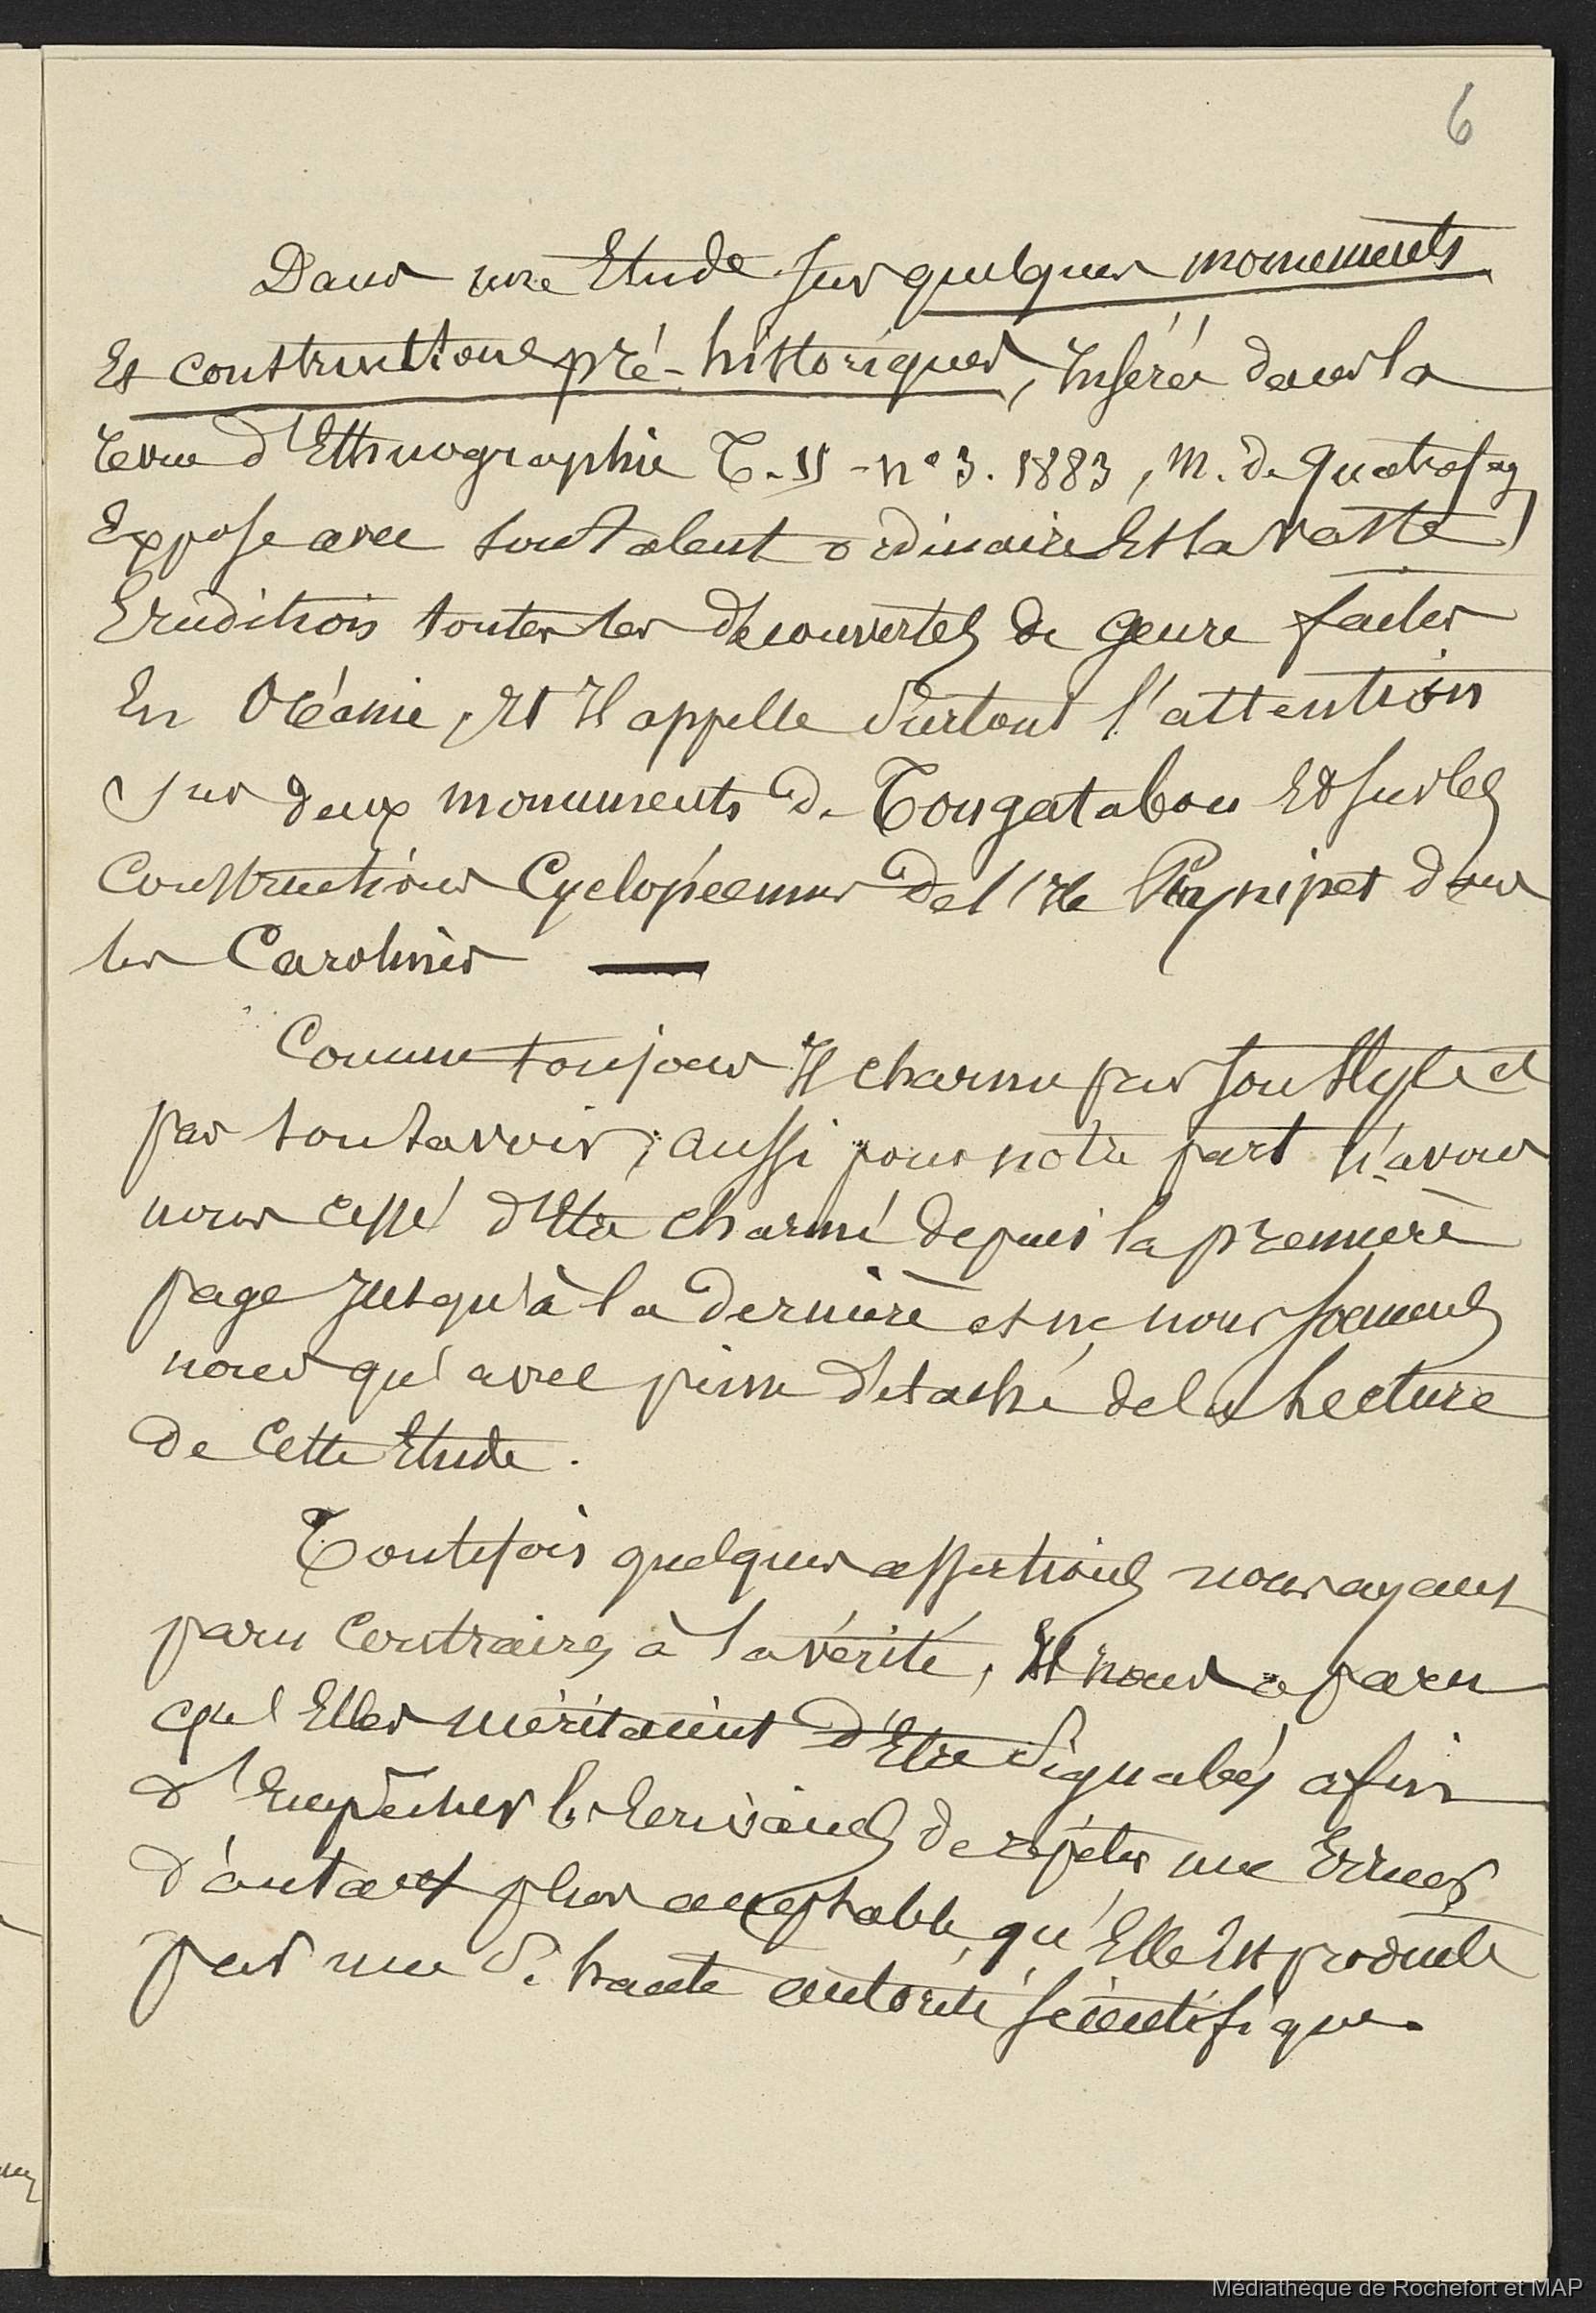 6
Dans une Etude sur quelques monuments
Et constructions pré-historiques, Insérée dans la
revue d'Ethnographie T. II - n° 3. 1883, M. de Quatrefages
Expose avec son talent ordinaire Et sa vaste
Erudition toutes les découvertes de genre faites
En Océanie, Et Il appelle surtout l'attention
sur deux monuments de Tongatabou Et sur les
Constructions Cyclopéennes de l'Ile Pounipet dans
les Carolines —
Comme toujours Il charme par son style et
par son savoir; aussi pour notre part n'avons
nous cessé d'Etre charmé depuis la première
page Jusqu'à la dernière et ne nous sommes
nous qu'avec peine détaché de la lecture
de cette Etude.
Toutefois quelques assertions nous ayant
paru contraires à la vérité, Il nous a paru
qu'Elles méritaient d'Etre signalées afin
d'Empêcher les Ecrivains de répéter une Erreur
d'autant plus acceptable, qu'Elle Est produite
par une si haute autorité scientifique.
Médiathèque de Rochefort et MAP